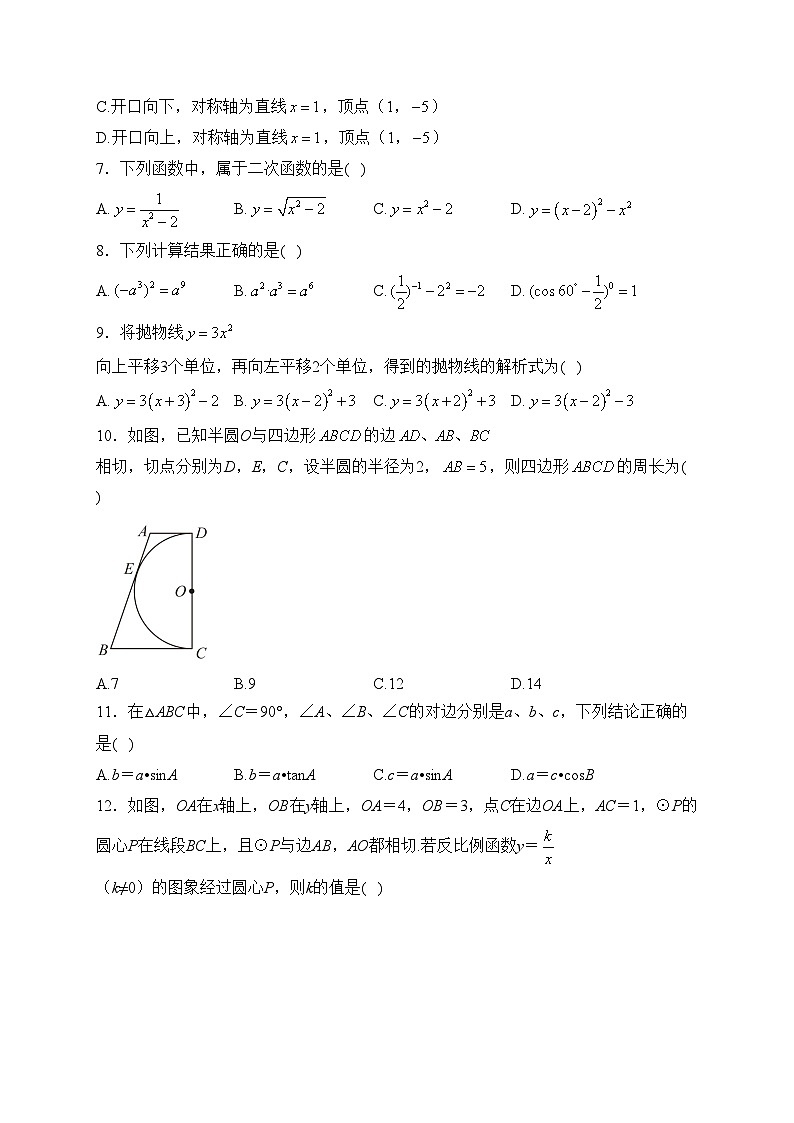 C.开口向下，对称轴为直线 x = 1，顶点（1，−5）
D.开口向上，对称轴为直线 x = 1，顶点（1，−5）
7．下列函数中，属于二次函数的是( )
A. y = 1/(x² − 2) B. y = √(x² − 2) C. y = x² − 2 D. y = (x − 2)² − x²
8．下列计算结果正确的是( )
A. (−a³)² = a⁹ B. a²·a³ = a⁶ C. (1/2)⁻¹ − 2² = −2 D. (cos 60° − 1/2)⁰ = 1
9．将抛物线 y = 3x²
向上平移3个单位，再向左平移2个单位，得到的抛物线的解析式为( )
A. y = 3(x + 3)² − 2 B. y = 3(x − 2)² + 3 C. y = 3(x + 2)² + 3 D. y = 3(x − 2)² − 3
10．如图，已知半圆O与四边形 ABCD 的边 AD、AB、BC
相切，切点分别为D，E，C，设半圆的半径为2， AB = 5，则四边形 ABCD 的周长为(
)
A D
E
O
B C
A.7 B.9 C.12 D.14
11．在△ABC中，∠C＝90°，∠A、∠B、∠C的对边分别是a、b、c，下列结论正确的
是( )
A.b＝a•sinA B.b＝a•tanA C.c＝a•sinA D.a＝c•cosB
12．如图，OA在x轴上，OB在y轴上，OA＝4，OB＝3，点C在边OA上，AC＝1，⊙P的
圆心P在线段BC上，且⊙P与边AB，AO都相切.若反比例函数y＝k/x
（k≠0）的图象经过圆心P，则k的值是( )